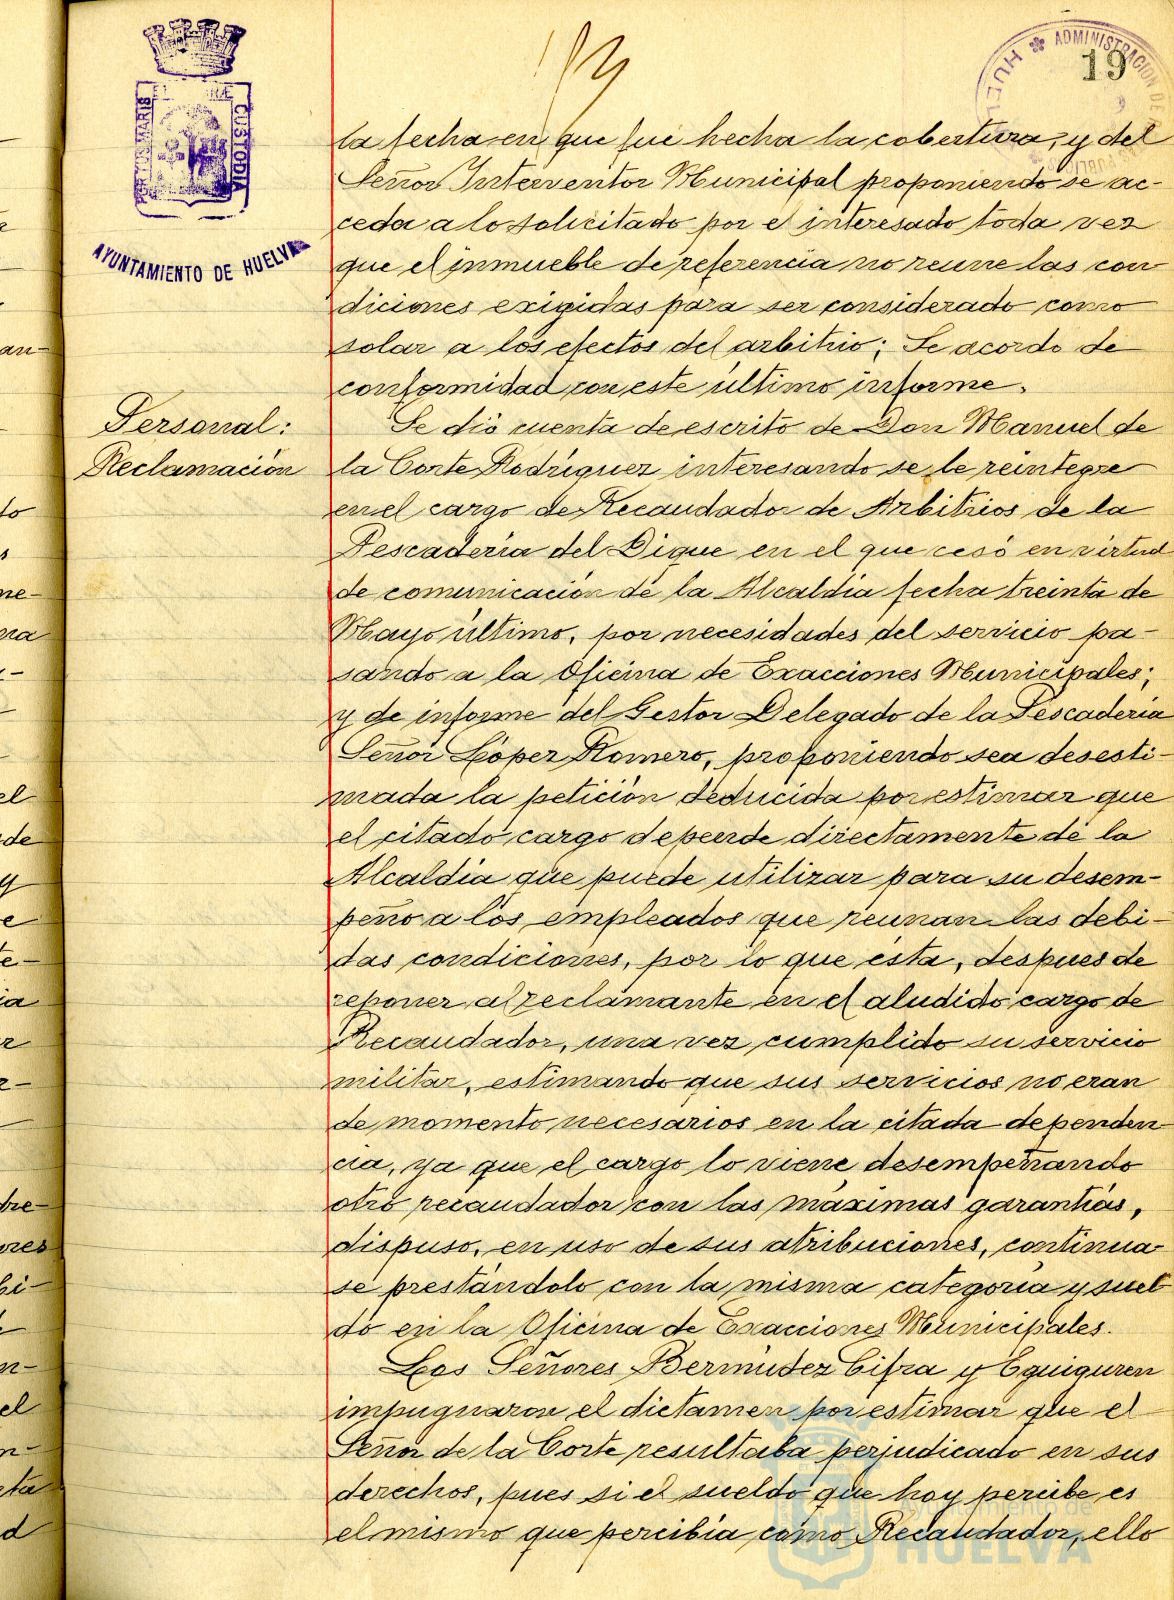 19
ADMINISTRACION DE
HUEL
PORTUS MARIS
CUSTODIA
AYUNTAMIENTO DE HUELVA
la fecha en que fue hecha la cobertura, y del
Señor Interventor Municipal proponiendo se ac-
ceda a lo solicitado por el interesado toda vez
que el inmueble de referencia no reune las con
diciones exigidas para ser considerado como
solar a los efectos del arbitrio; Se acordo de
conformidad con este último informe.
Personal:
Reclamación
Se dió cuenta de escrito de Don Manuel de
la Corte Rodríguez interesando se le reintegre
en el cargo de Recaudador de Arbitrios de la
Pescadería del Dique en el que cesó en virtud
de comunicación de la Alcaldía fecha treinta de
Mayo último, por necesidades del servicio pa-
sando a la Oficina de Exacciones Municipales;
y de informe del Gestor Delegado de la Pescadería
Señor López Romero, proponiendo sea desesti-
mada la petición deducida por estimar que
el citado cargo depende directamente de la
Alcaldía que puede utilizar para su desem-
peño a los empleados que reunan las debi-
das condiciones, por lo que ésta, despues de
reponer al reclamante en el aludido cargo de
Recaudador, una vez cumplido su servicio
militar, estimando que sus servicios no eran
de momento necesarios en la citada dependen
cia, ya que el cargo lo viene desempeñando
otro recaudador con las máximas garantías,
dispuso, en uso de sus atribuciones, continua-
se prestándolo con la misma categoría y suel
do en la Oficina de Exacciones Municipales.
Los Señores Bermúdez Cifra y Eguiguren
impugnaron el dictamen por estimar que el
Señor de la Corte resultaba perjudicado en sus
derechos, pues si el sueldo que hoy percibe es
el mismo que percibía como Recaudador, ello
Ayuntamiento de
HUELVA